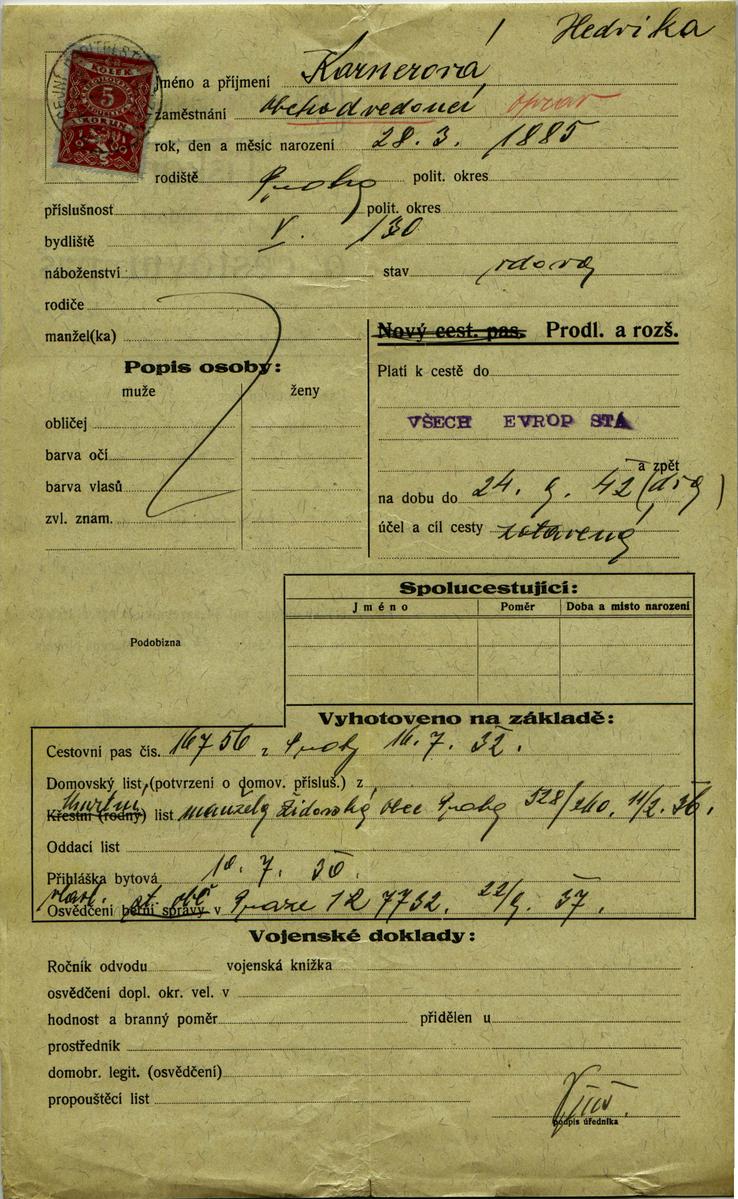 Hedvika
KOLEK
5
KORUN
Jméno a příjmení Karnerová
zaměstnání obchodvedoucí oprav
rok, den a měsíc narození 28. 3. 1885
rodiště Praha polit. okres
příslušnost polit. okres
bydliště V. /30
náboženství stav vdova
rodiče
manžel(ka)
Nový cest. pas. Prodl. a rozš.
Popis osoby:
muže ženy
obličej
barva očí
barva vlasů
zvl. znam.
Platí k cestě do
VŠECH EVROP STÁ
a zpět
na dobu do 24. 9. 42
účel a cíl cesty zotavená
Spolucestující:
Jméno Poměr Doba a místo narození
Podobizna
Vyhotoveno na základě:
Cestovní pas čís. 16756 z Prahy 16. 7. 32.
Domovský list, (potvrzení o domov. přísluš.) z
Křestní (rodný) list manžela Židovské obce Prahy 328/260. 11/2. 36.
Oddací list
Přihláška bytová 10. 7. 30.
vlast.
Osvědčení berní správy st. obč v Praze 12 7732. 22/9. 37.
Vojenské doklady:
Ročník odvodu vojenská knížka
osvědčení dopl. okr. vel. v
hodnost a branný poměr přidělen u
prostředník
domobr. legit. (osvědčení)
propouštěcí list
podpis úředníka